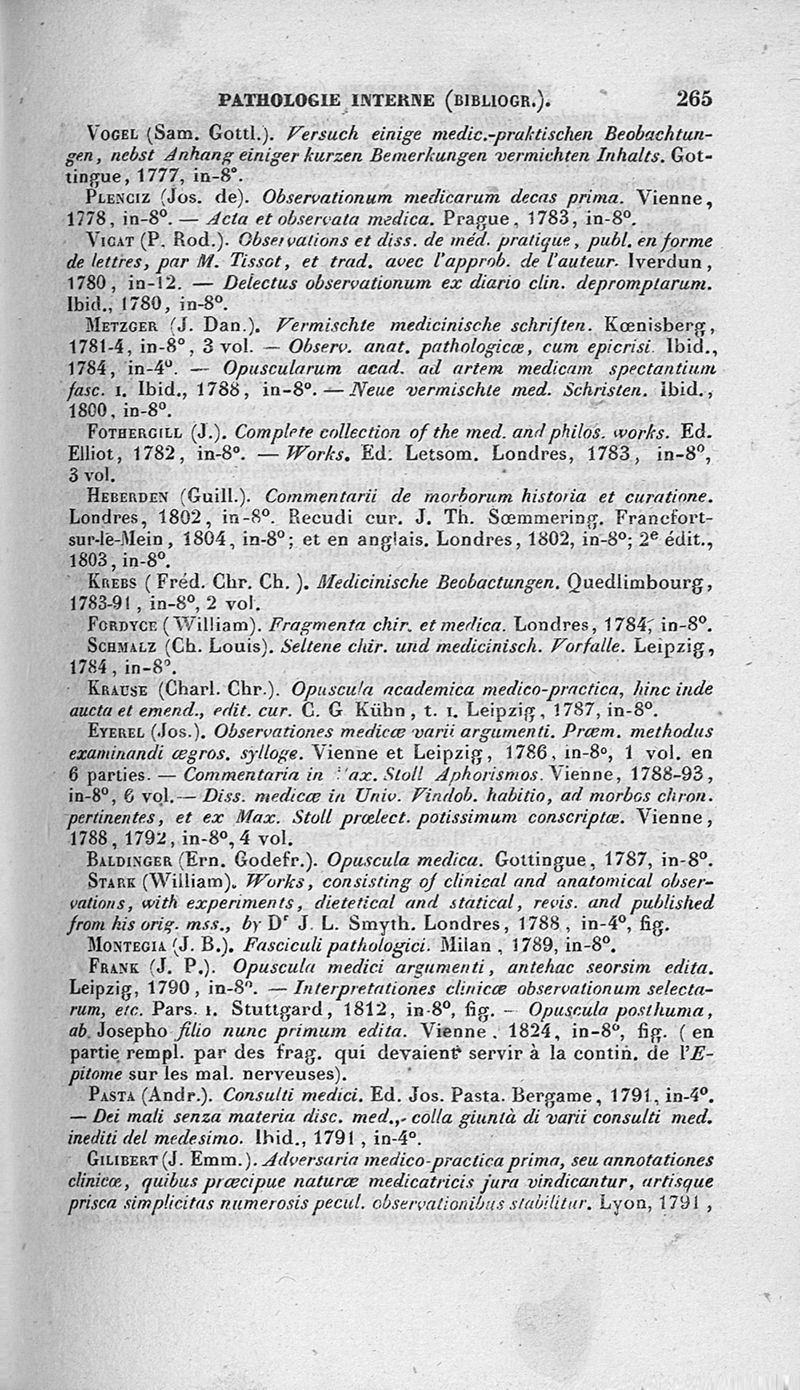 PATHOLOGIE INTERNE (BIBLIOGR.). 265
VOGEL (Sam. Gottl.). Versuch einige medic.-praktischen Beobachtun-
gen, nebst Anhang einiger kurzen Bemerkungen vermichten Inhalts. Got-
tingue, 1777, in-8°.
PLENCIZ (Jos. de). Observationum medicarum decas prima. Vienne,
1778, in-8°. — Acta et observata medica. Prague, 1783, in-8°.
VIGAT (P. Rod.). Observations et diss. de méd. pratique, publ. en forme
de lettres, par M. Tissot, et trad. avec l'approb. de l'auteur. Iverdun,
1780, in-12. — Delectus observationum ex diario clin. depromptarum.
Ibid., 1780, in-8°.
METZGER (J. Dan.). Vermischte medicinische schriften. Kœnisberg,
1781-4, in-8°, 3 vol. — Observ. anat. pathologicæ, cum epicrisi. Ibid.,
1784, in-4°. — Opuscularum acad. ad artem medicam spectantium
fasc. I. Ibid., 1788, in-8°. — Neue vermischte med. Schristen. ibid.,
1800, in-8°.
FOTHERGILL (J.). Complete collection of the med. and philos. works. Ed.
Elliot, 1782, in-8°. — Works. Ed. Letsom. Londres, 1783, in-8°,
3 vol.
HEBERDEN (Guill.). Commentarii de morborum historia et curatione.
Londres, 1802, in-8°. Recudi cur. J. Th. Sœmmering. Francfort-
sur-le-Mein, 1804, in-8°; et en anglais. Londres, 1802, in-8°; 2e édit.,
1803, in-8°.
KREBS (Fréd. Chr. Ch.). Medicinische Beobactungen. Quedlimbourg,
1783-91, in-8°, 2 vol.
FORDYCE (William). Fragmenta chir. et medica. Londres, 1784, in-8°.
SCHMALZ (Ch. Louis). Seltene chir. und medicinisch. Vorfalle. Leipzig,
1784, in-8°.
KRAUSE (Charl. Chr.). Opuscula academica medico-practica, hinc inde
aucta et emend., edit. cur. C. G Kühn, t. I. Leipzig, 1787, in-8°.
EYEREL (Jos.). Observationes medicæ varii argumenti. Præm. methodus
examinandi ægros. sylloge. Vienne et Leipzig, 1786, in-8°, 1 vol. en
6 parties. — Commentaria in Max. Stoll Aphorismos. Vienne, 1788-93,
in-8°, 6 vol. — Diss. medicæ in Univ. Vindob. habitio, ad morbos chron.
pertinentes, et ex Max. Stoll prælect. potissimum conscriptæ. Vienne,
1788, 1792, in-8°, 4 vol.
BALDINGER (Ern. Godefr.). Opuscula medica. Gottingue, 1787, in-8°.
STARK (William). Works, consisting of clinical and anatomical obser-
vations, with experiments, dietetical and statical, revis. and published
from his orig. mss., by Dr J. L. Smyth. Londres, 1788, in-4°, fig.
MONTEGIA (J. B.). Fasciculi pathologici. Milan, 1789, in-8°.
FRANK (J. P.). Opuscula medici argumenti, antehac seorsim edita.
Leipzig, 1790, in-8°. — Interpretationes clinicæ observationum selecta-
rum, etc. Pars. I. Stuttgard, 1812, in-8°, fig. — Opuscula posthuma,
ab Josepho filio nunc primum edita. Vienne. 1824, in-8°, fig. (en
partie rempl. par des frag. qui devaient servir à la contin. de l'E-
pitome sur les mal. nerveuses).
PASTA (Andr.). Consulti medici. Ed. Jos. Pasta. Bergame, 1791, in-4°.
— Dei mali senza materia disc. med., colla giuntà di varii consulti med.
inediti del medesimo. Ibid., 1791, in-4°.
GILIBERT (J. Emm.). Adversaria medico-practica prima, seu annotationes
clinicæ, quibus præcipue naturæ medicatricis jura vindicantur, artisque
prisca simplicitas numerosis pecul. observationibus stabilitur. Lyon, 1791,